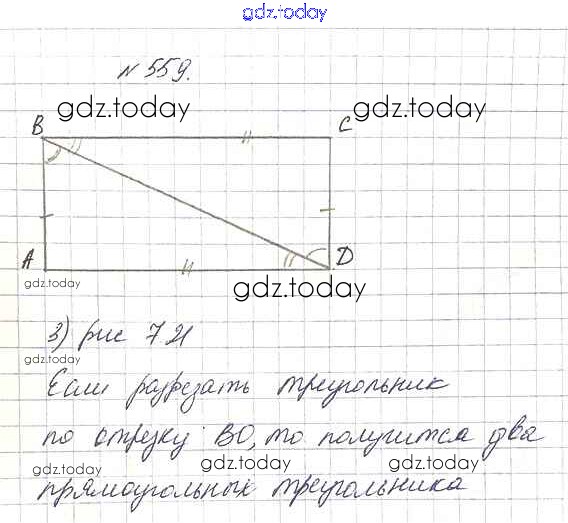 gdz.today
№ 559.
gdz.today gdz.today
B C
A D
gdz.today gdz.today
3) рис 721
gdz.today
Если разрезать треугольник
по отрезку BD, то получится два
gdz.today gdz.today gdz.today
прямоугольных треугольника